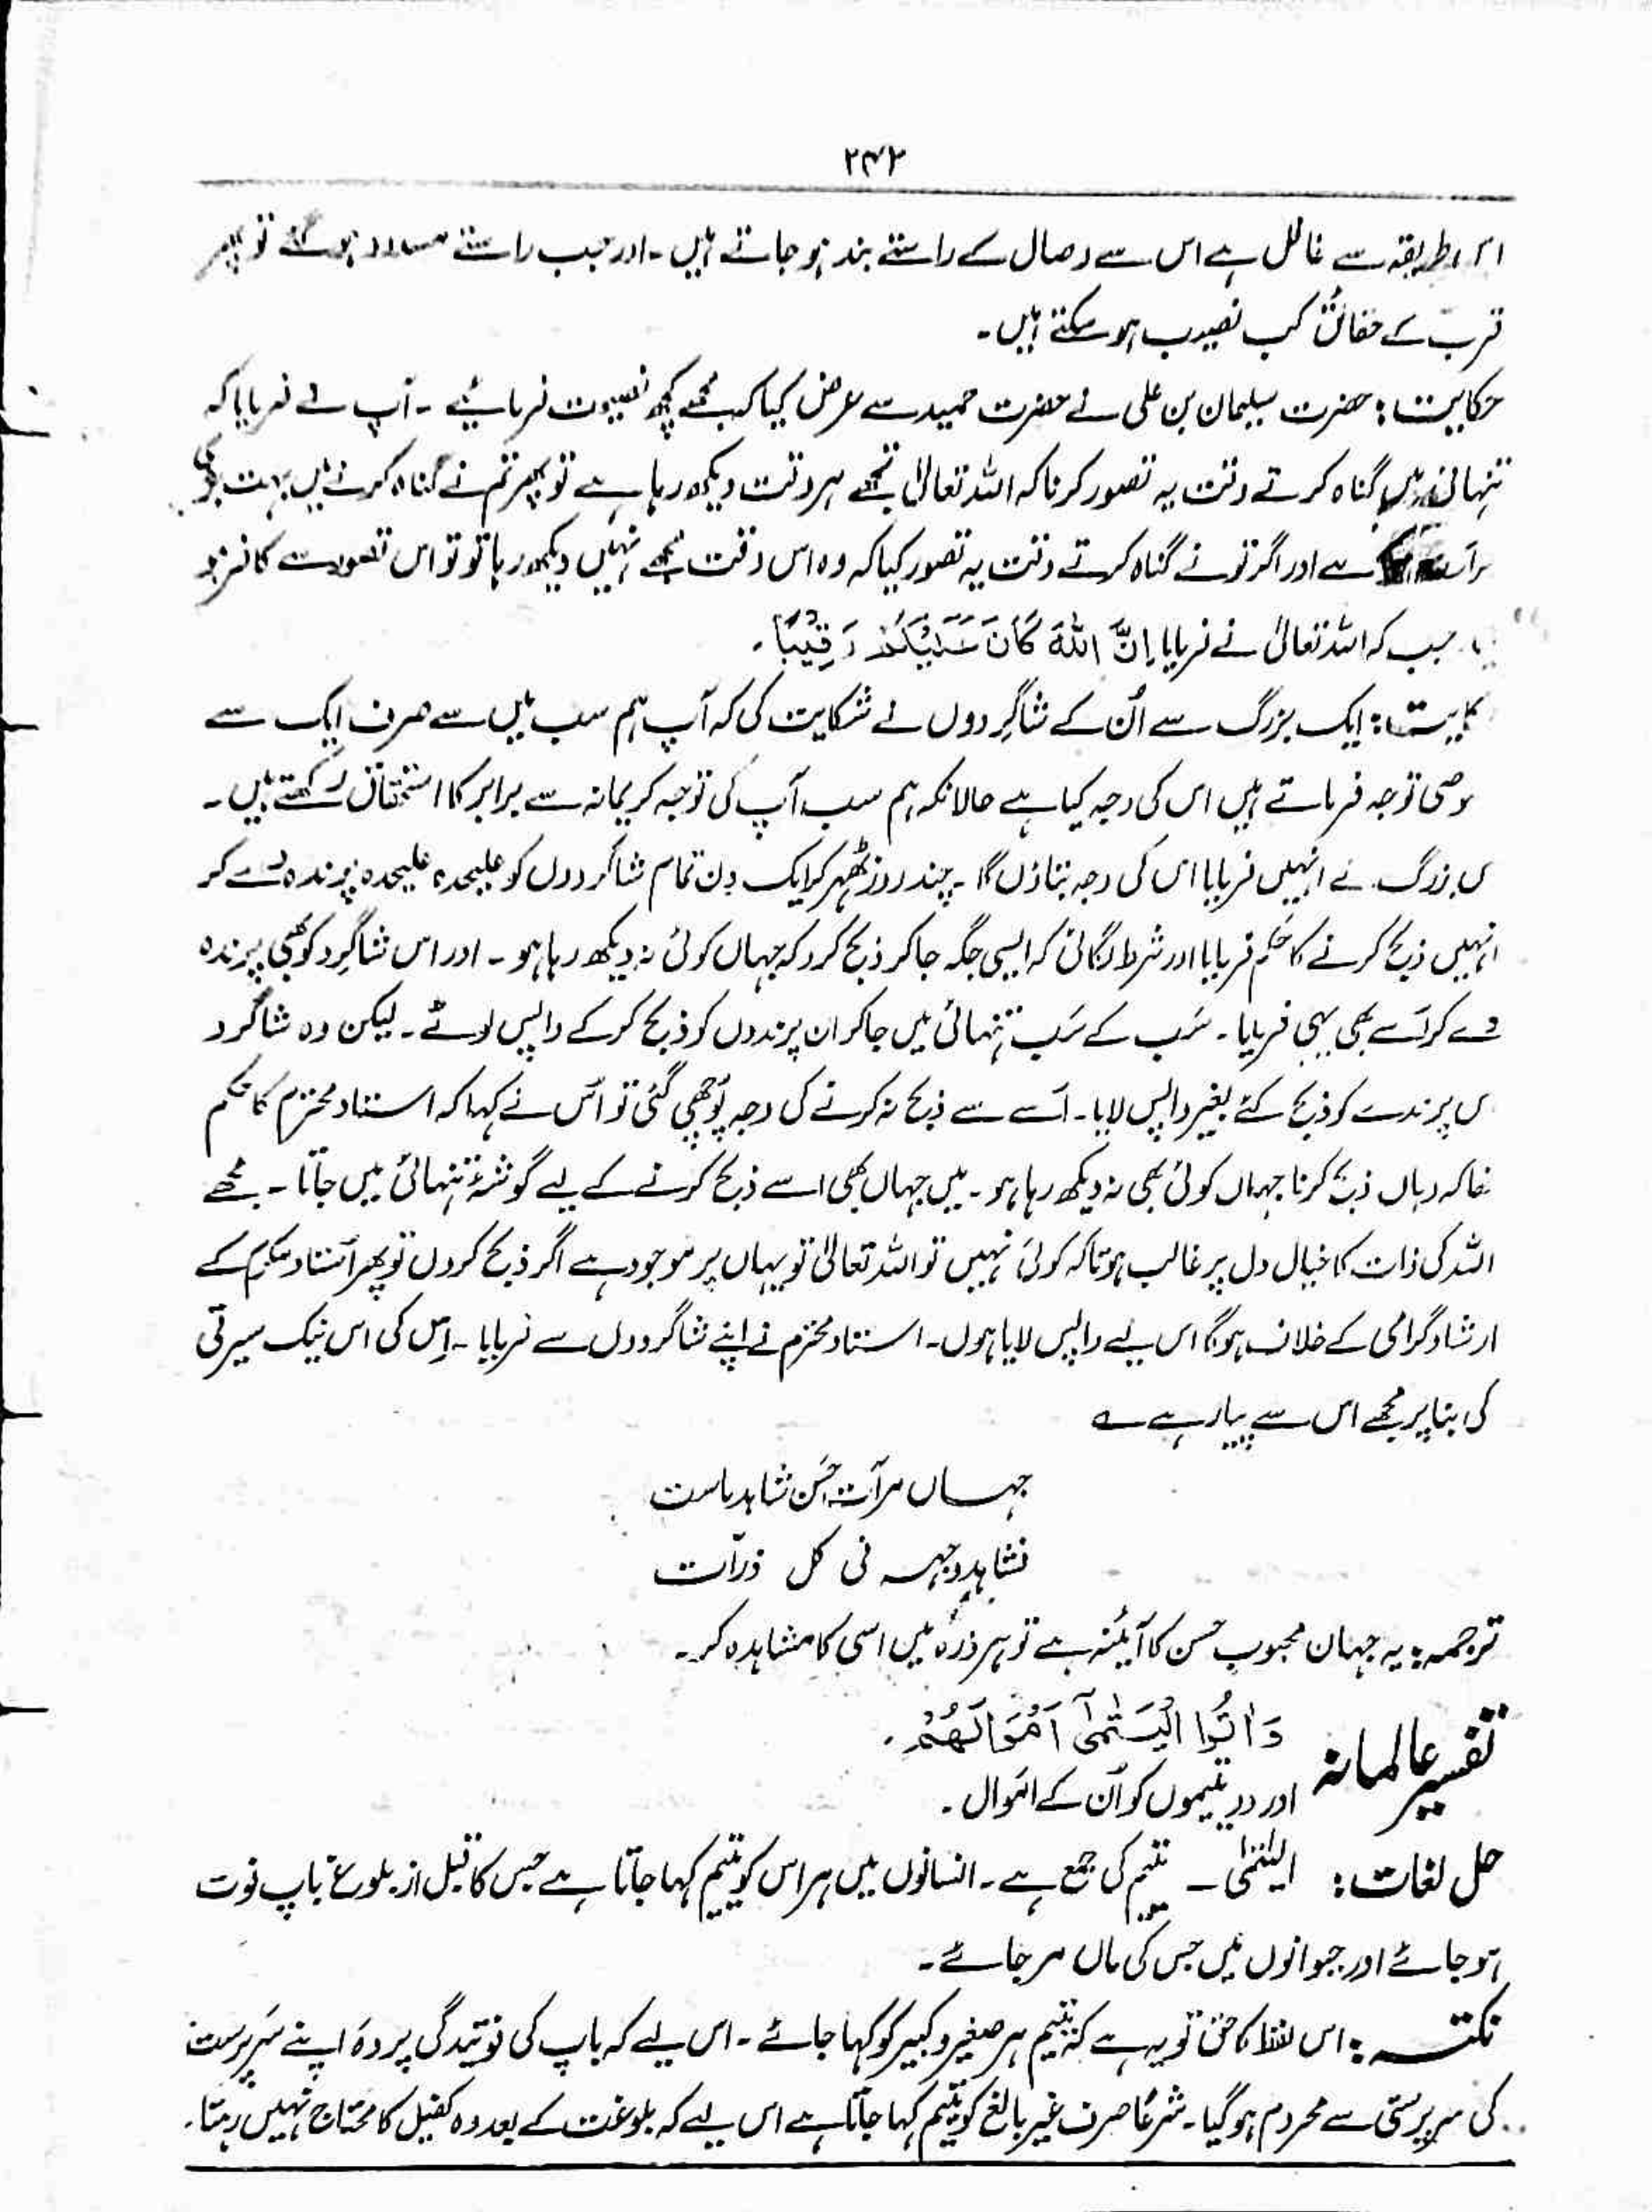 ۲۴۲
طریقہ سے غافل ہے اس سے وصال کے راستے بند ہو جاتے ہیں۔ اور جب راستے مسدود ہو گئے تو پھر
قرب کے حقائق کب نصیب ہو سکتے ہیں۔
حکایت: حضرت سلیمان بن علی نے حضرت حمید سے عرض کیا کہ مجھے کچھ نصیحت فرمائیے۔ آپ نے فرمایا کہ
تنہائی میں گناہ کرتے وقت یہ تصور کرنا کہ اللہ تعالیٰ تجھے ہر وقت دیکھ رہا ہے تو پھر تم نے گناہ کرنے میں بہت بڑی
سے اور اگر تو نے گناہ کرتے وقت یہ تصور کیا کہ وہ اس وقت تجھے نہیں دیکھ رہا تو تو اس تصور سے کافر
جب کہ اللہ تعالیٰ نے فرمایا اِنَّ اللّٰهَ كَانَ عَلَيْكُمْ رَقِيْبًا۔
کایت: ایک بزرگ سے اُن کے شاگردوں نے شکایت کی کہ آپ ہم سب میں سے صرف ایک سے
وصی توجہ فرماتے ہیں اس کی وجہ کیا ہے حالانکہ ہم سب آپ کی توجہ کریمانہ سے برابر کا استحقاق رکھتے ہیں۔
س بزرگ نے انہیں فرمایا اس کی وجہ بتاؤں گا۔ چند روز ٹھہر کر ایک دن تمام شاگردوں کو علیحدہ علیحدہ پرندہ دے کر
انہیں ذبح کرنے کا حکم فرمایا اور شرط لگائی کہ ایسی جگہ جا کر ذبح کرو کہ جہاں کوئی نہ دیکھ رہا ہو۔ اور اس شاگرد کو بھی پرندہ
دے کر اُسے بھی یہی فرمایا۔ سَب کے سَب تنہائی میں جا کر ان پرندوں کو ذبح کر کے واپس لوٹے۔ لیکن وہ شاگرد
س پرندے کو ذبح کئے بغیر واپس لایا۔ اُسے سے ذبح نہ کرنے کی وجہ پُوچھی گئی تو اُس نے کہا کہ استاد محترم کا حکم
تھا کہ وہاں ذبح کرنا جہاں کوئی بھی نہ دیکھ رہا ہو۔ میں جہاں بھی اسے ذبح کرنے کے لیے گوشۂ تنہائی میں جاتا۔ مجھے
اللہ کی ذات کا خیال دل پر غالب ہوتا کہ کوئی نہیں تو اللہ تعالیٰ تو یہاں پر موجود ہے اگر ذبح کردوں تو پھر اُستاد مکرم کے
ارشاد گرامی کے خلاف ہو گا اس لیے واپس لایا ہوں۔ استاد محترم نے اپنے شاگردوں سے فرمایا۔ اِس کی اس نیک سیرتی
کی بنا پر مجھے اس سے پیار ہے ؎
جہاں مرآت حُسن شاہد ماست
فشاہد وجہہ فی کل ذرات
ترجمہ: یہ جہان محبوب حسن کا آئینہ ہے تو ہر ذرہ میں اسی کا مشاہدہ کر۔
تفسیر عالمانہ وَاٰتُوا الْيَتٰمٰٓى اَمْوَالَهُمْ۔
اور دو یتیموں کو اُن کے اموال۔
حل لغات: الیتمٰی۔ یتیم کی جمع ہے۔ انسانوں میں ہر اس کو یتیم کہا جاتا ہے جس کا قبل از بلوغ باپ فوت
ہو جائے اور حیوانوں میں جس کی ماں مر جائے۔
نکتہ: اس لفظ کا حق تو یہ ہے کہ یتیم ہر صغیر و کبیر کو کہا جائے۔ اس لیے کہ باپ کی فوتیدگی پر وہ اپنے سرپرست
کی سرپرستی سے محروم ہو گیا۔ شرعًا صرف غیر بالغ کو یتیم کہا جاتا ہے اس لیے کہ بلوغت کے بعد وہ کفیل کا محتاج نہیں رہتا۔